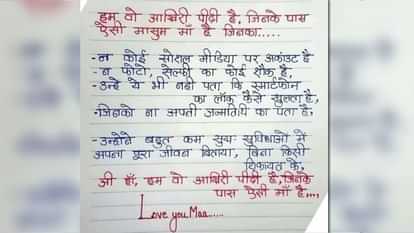 हम वो आखिरी पीढ़ी है, जिनके पास
ऐसी मासुम माँ है जिनका.....
-न कोई सोशल मीडिया पर अकाउंट है
-न फोटो, सेल्फी का कोई शौक है,
-उन्हें ये भी नही पता कि स्मार्टफोन
का लॉक कैसे खुलता है,
-जिनको ना अपनी जन्मतिथि का पता है.
-उन्होंने बहुत कम सुख-सुविधाओं में
अपना पूरा जीवन बिताया, बिना किसी
शिकायत के.
जी हाँ, हम वो आखिरी पीढ़ी है, जिनके
पास ऐसी माँ है....
Love you Maa.....